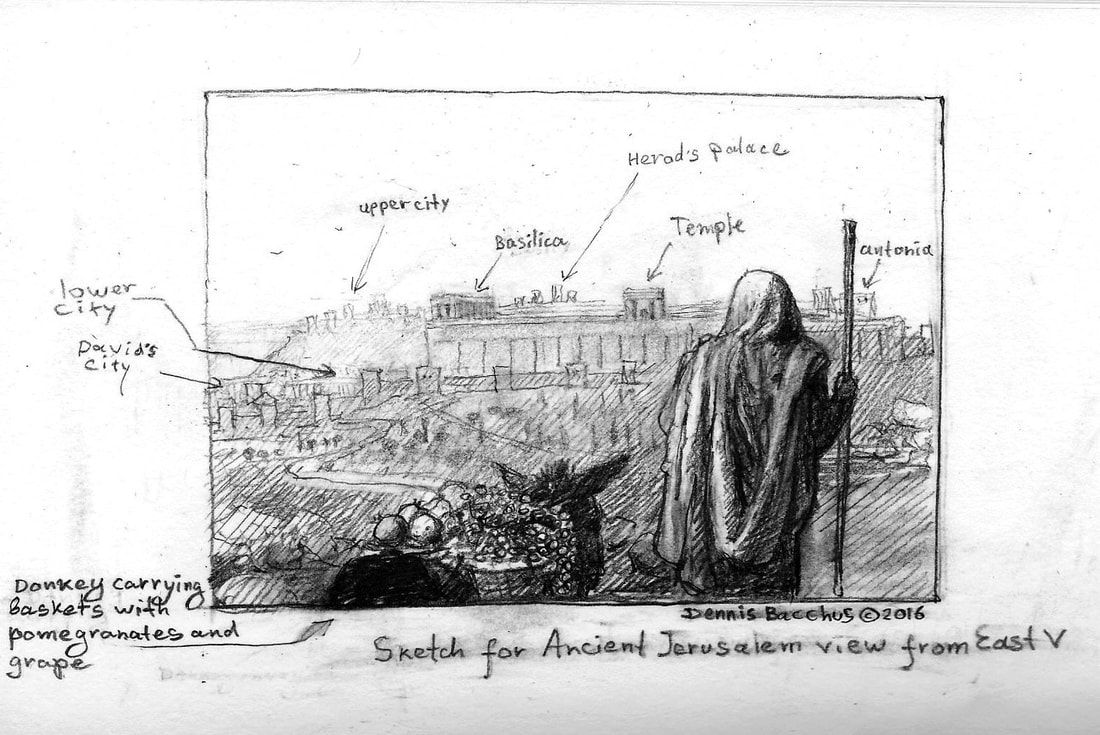 Herod's palace
upper city
Basilica
Temple
antonia
lower
city
David's
city
Donkey carrying
baskets with
pomegranates and
grape
Dennis Bacchus ©2016
Sketch for Ancient Jerusalem view from East V